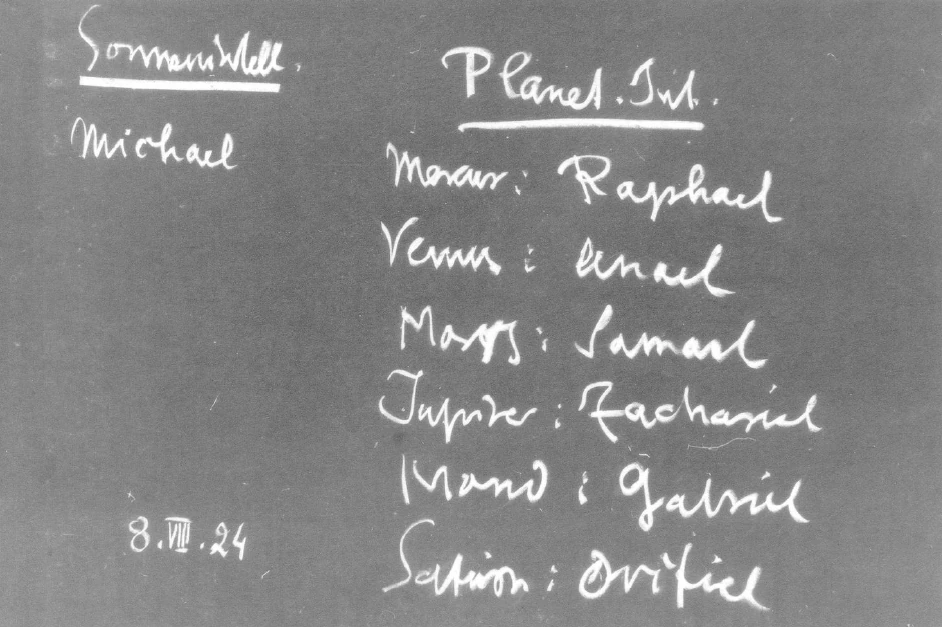 Sonnenintell.
Michael
Planet. Int.
Merkur: Raphael
Venus: Anael
Mars: Samael
Jupiter: Zachariel
Mond: Gabriel
Saturn: Orifiel
8.VIII.24